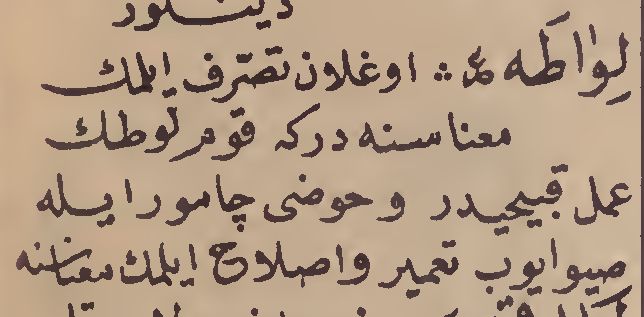 دينلور
لِوَاطَه ۞ اوغلان تصرّف ايلمك
معناسنه دركه قوم لوطك
عمل قبيحيدر و حوضى چامور ايله
صيوايوب تعمير واصلاح ايلمك معناسنه